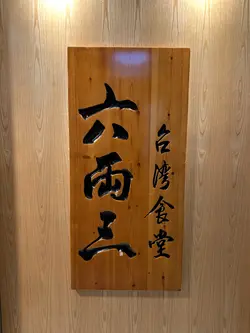 台湾食堂
六両三